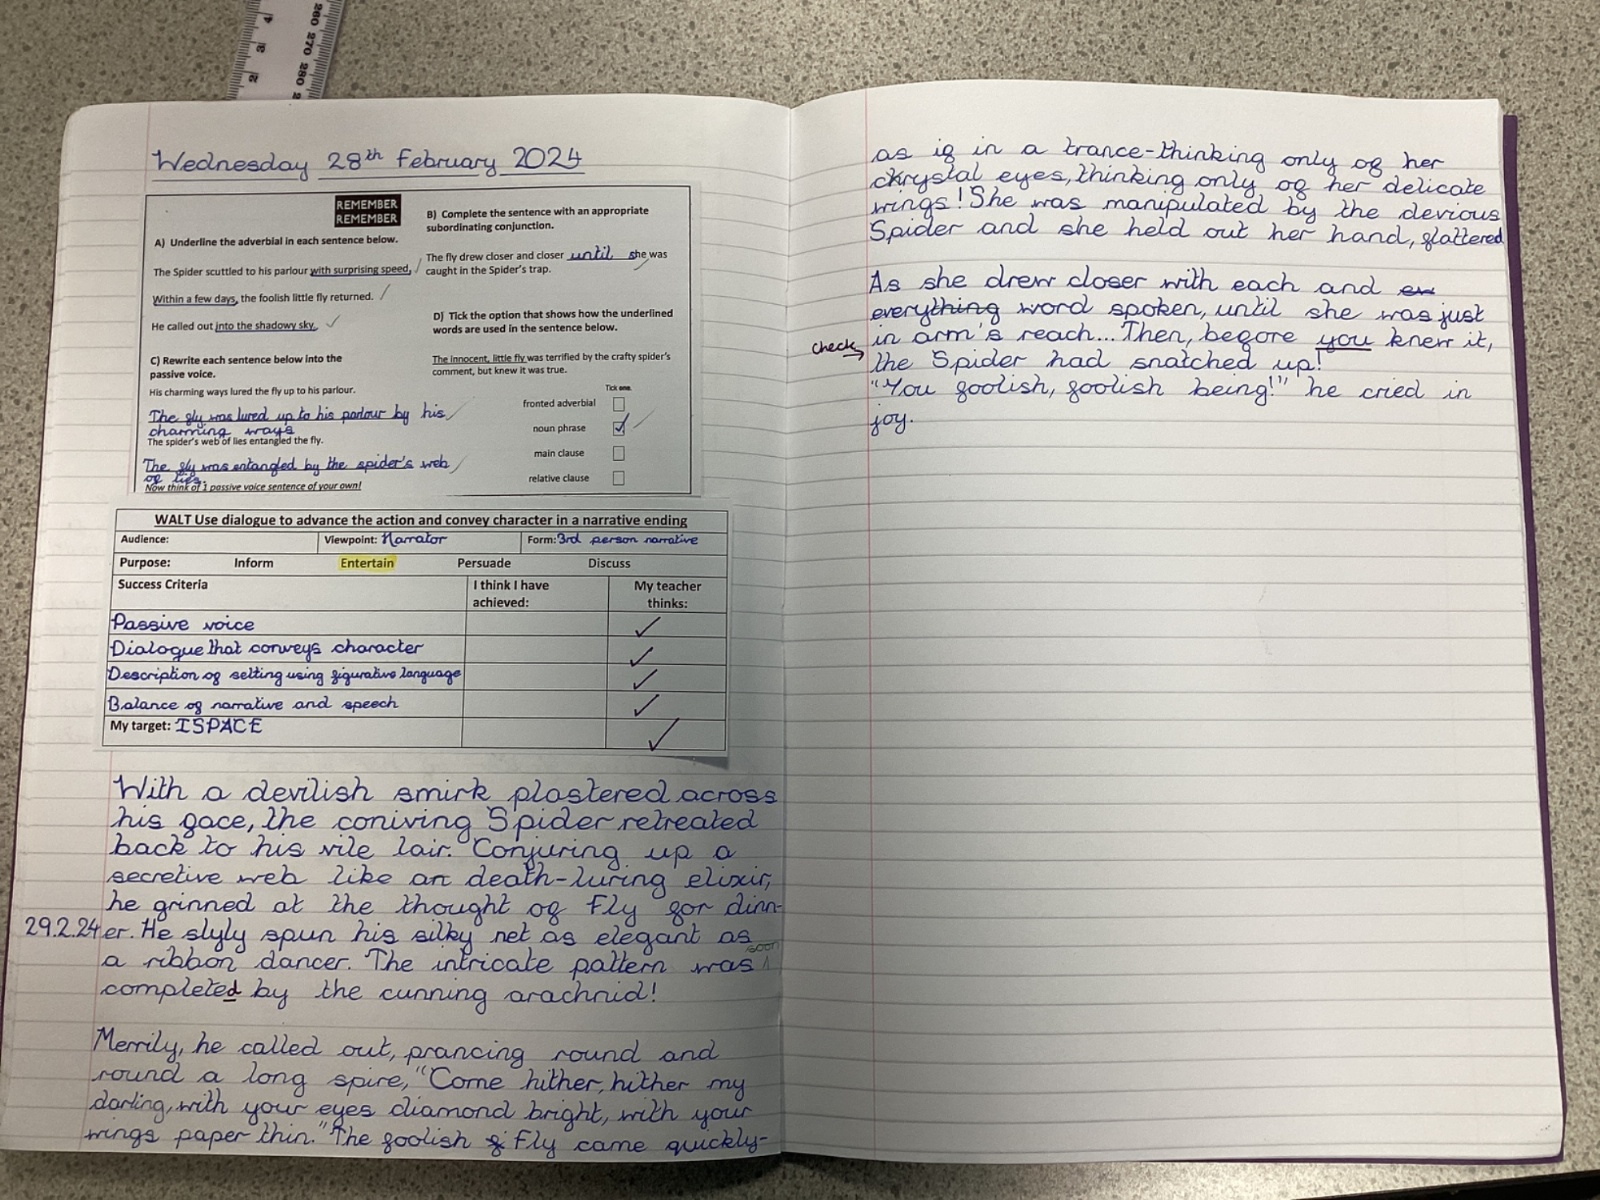 Wednesday 28th February 2024
REMEMBER
REMEMBER
A) Underline the adverbial in each sentence below.
The Spider scuttled to his parlour with surprising speed,
Within a few days, the foolish little fly returned.
He called out into the shadowy sky.
C) Rewrite each sentence below into the
passive voice.
His charming ways lured the fly up to his parlour.
The fly was lured up to his parlour by his
charming ways
The spider's web of lies entangled the fly.
The fly was entangled by the spider's web
of lies.
Now think of 1 passive voice sentence of your own!
B) Complete the sentence with an appropriate
subordinating conjunction.
The fly drew closer and closer until she was
caught in the Spider's trap.
D) Tick the option that shows how the underlined
words are used in the sentence below.
The innocent, little fly was terrified by the crafty spider's
comment, but knew it was true.
Tick one.
fronted adverbial
noun phrase
main clause
relative clause
WALT Use dialogue to advance the action and convey character in a narrative ending
Audience: Viewpoint: Narrator Form: 3rd person narrative
Purpose: Inform Entertain Persuade Discuss
Success Criteria I think I have achieved: My teacher thinks:
Passive voice
Dialogue that conveys character
Description of setting using figurative language
Balance of narrative and speech
My target: ISPACE
With a devilish smirk plastered across
his face, the coniving Spider retreated
back to his vile lair. Conjuring up a
secretive web like an death-luring elixir,
he grinned at the thought of Fly for dinn-
29.2.24 er. He slyly spun his silky net as elegant as
a ribbon dancer. The intricate pattern was soon
completed by the cunning arachnid!
Merrily, he called out, prancing round and
round a long spire, "Come hither, hither my
darling, with your eyes diamond bright, with your
wings paper thin." The foolish f Fly came quickly-
as if in a trance-thinking only of her
chrystal eyes, thinking only of her delicate
wings! She was manipulated by the devious
Spider and she held out her hand, flattered
As she drew closer with each and ev
everything word spoken, until she was just
in arm's reach... Then, before you knew it,
check
the Spider had snatched up!
"You foolish, foolish being!" he cried in
joy.
2 3 4
260 270 280